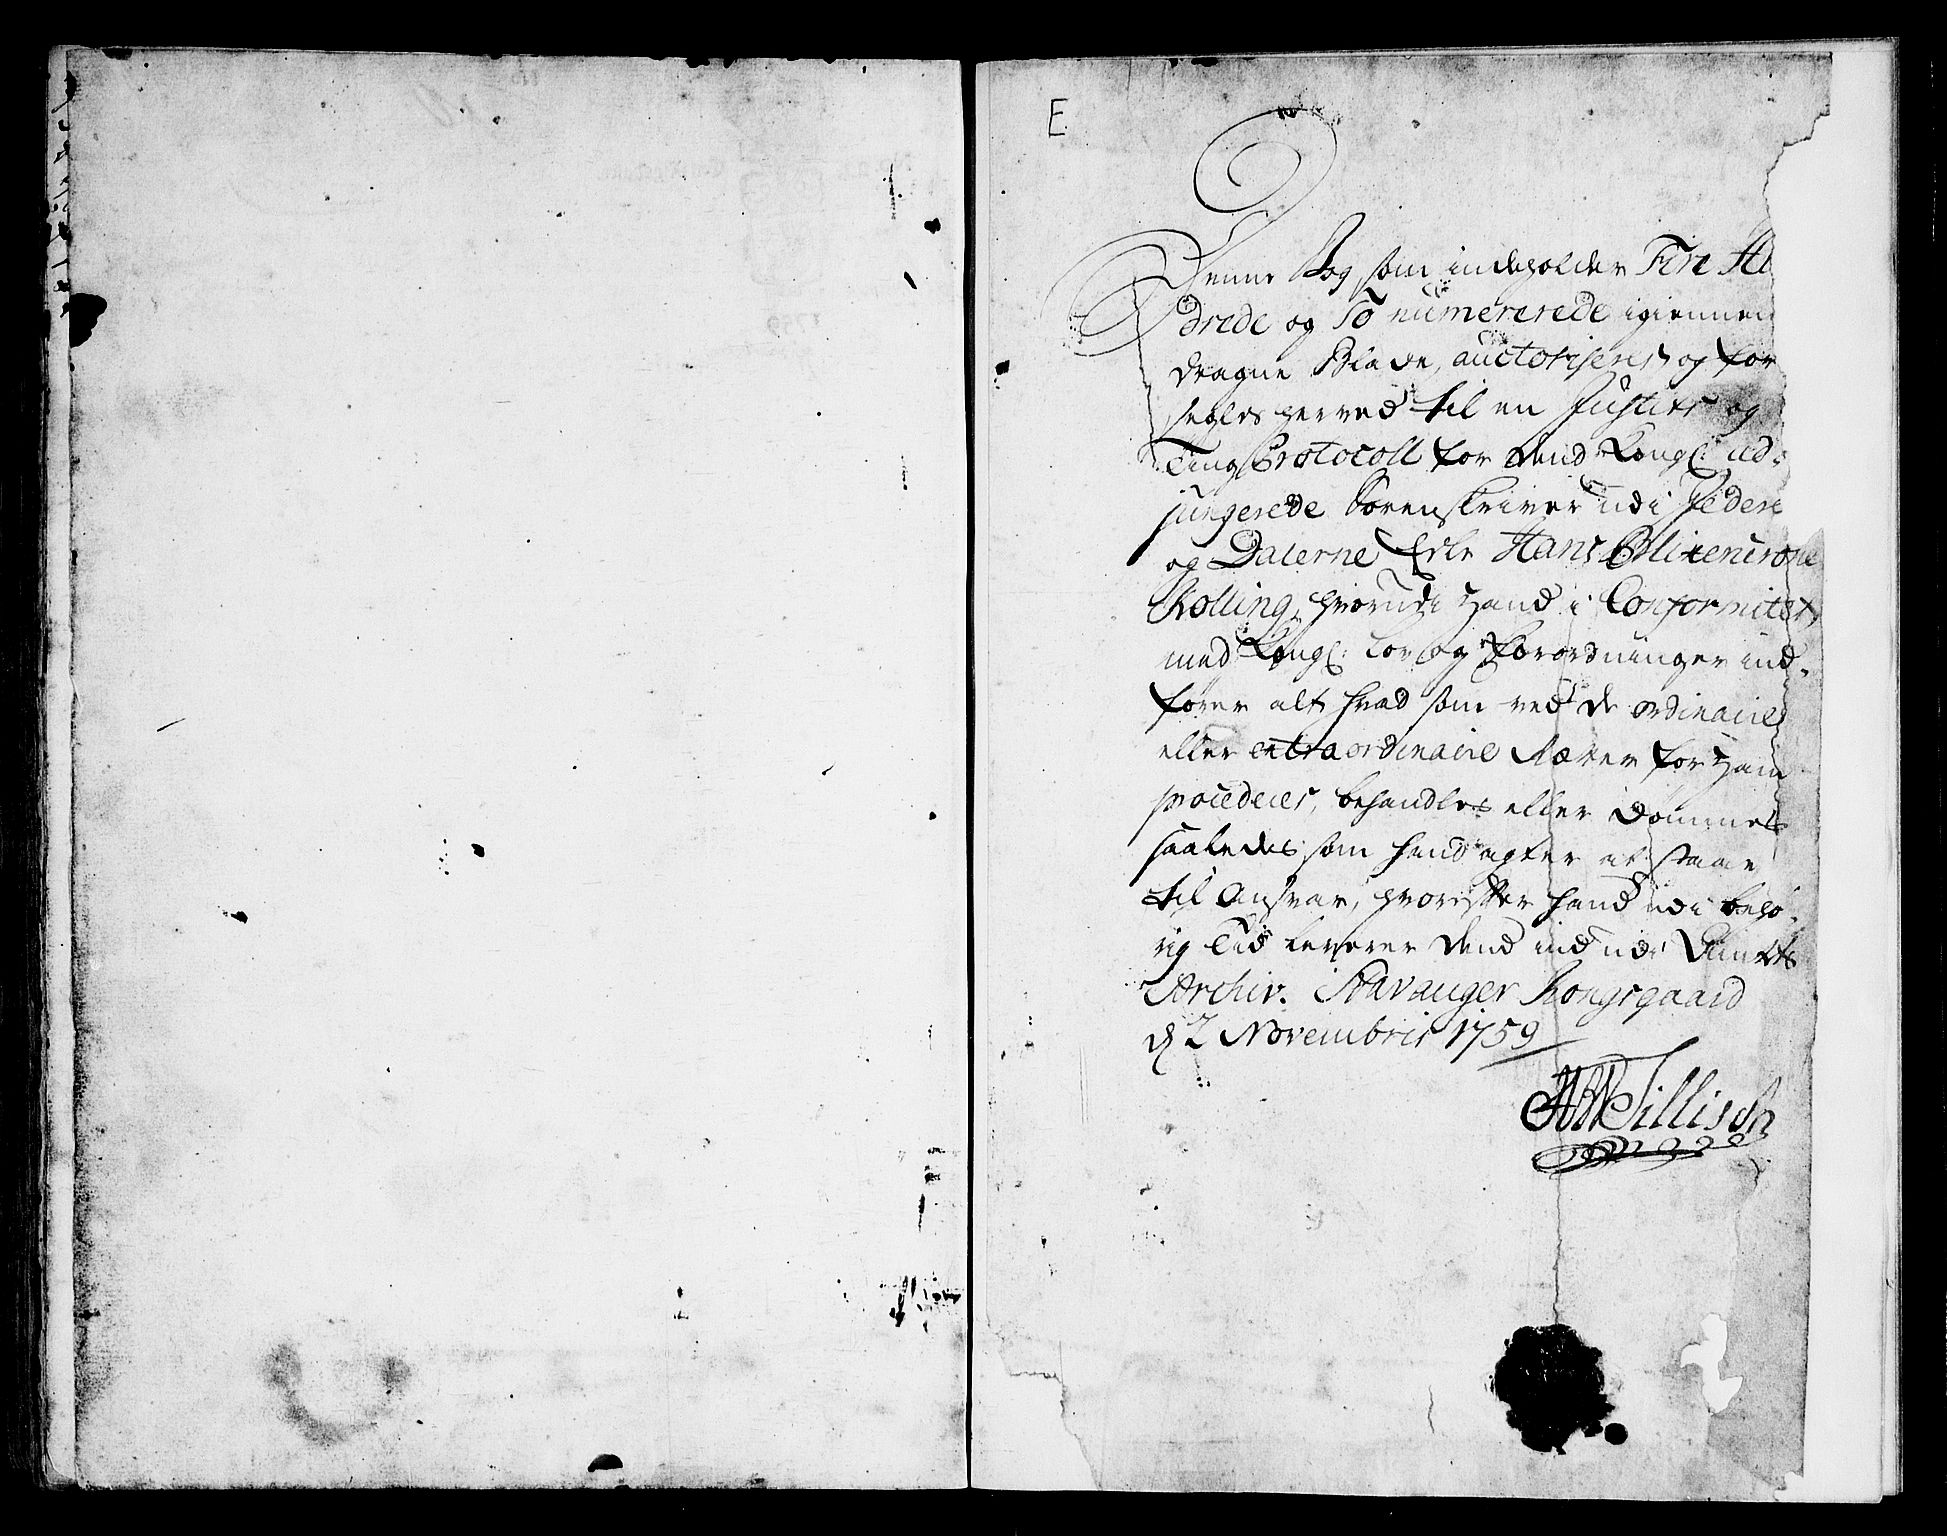 E
Denne Bog, som indeholder Fire Hu
drede og To numererede igiennem
dragne Blade, auctoriseres og for
segles herved til en Justits og
Ting Protocoll for dend Kongl: ad-
jungerede Sorenskriver udi Jedere
og Dalerne Edle Hans Blixencrone
Kolling, hvorudi hand i Conformitet
med Kongl: Lov og Forordninger ind-
fører alt hvad som ved de ordinaire
eller extraordinaire Rætter for ham
procederes, behandles eller dømmes
saaledes som hand agter at staae
til Ansvar, hvorefter hand udi behø-
rig Tid leverer dend ind udi Amtets
Archiv. Stavanger Kongsgaard
d 2 Novembris 1759
Tillisch